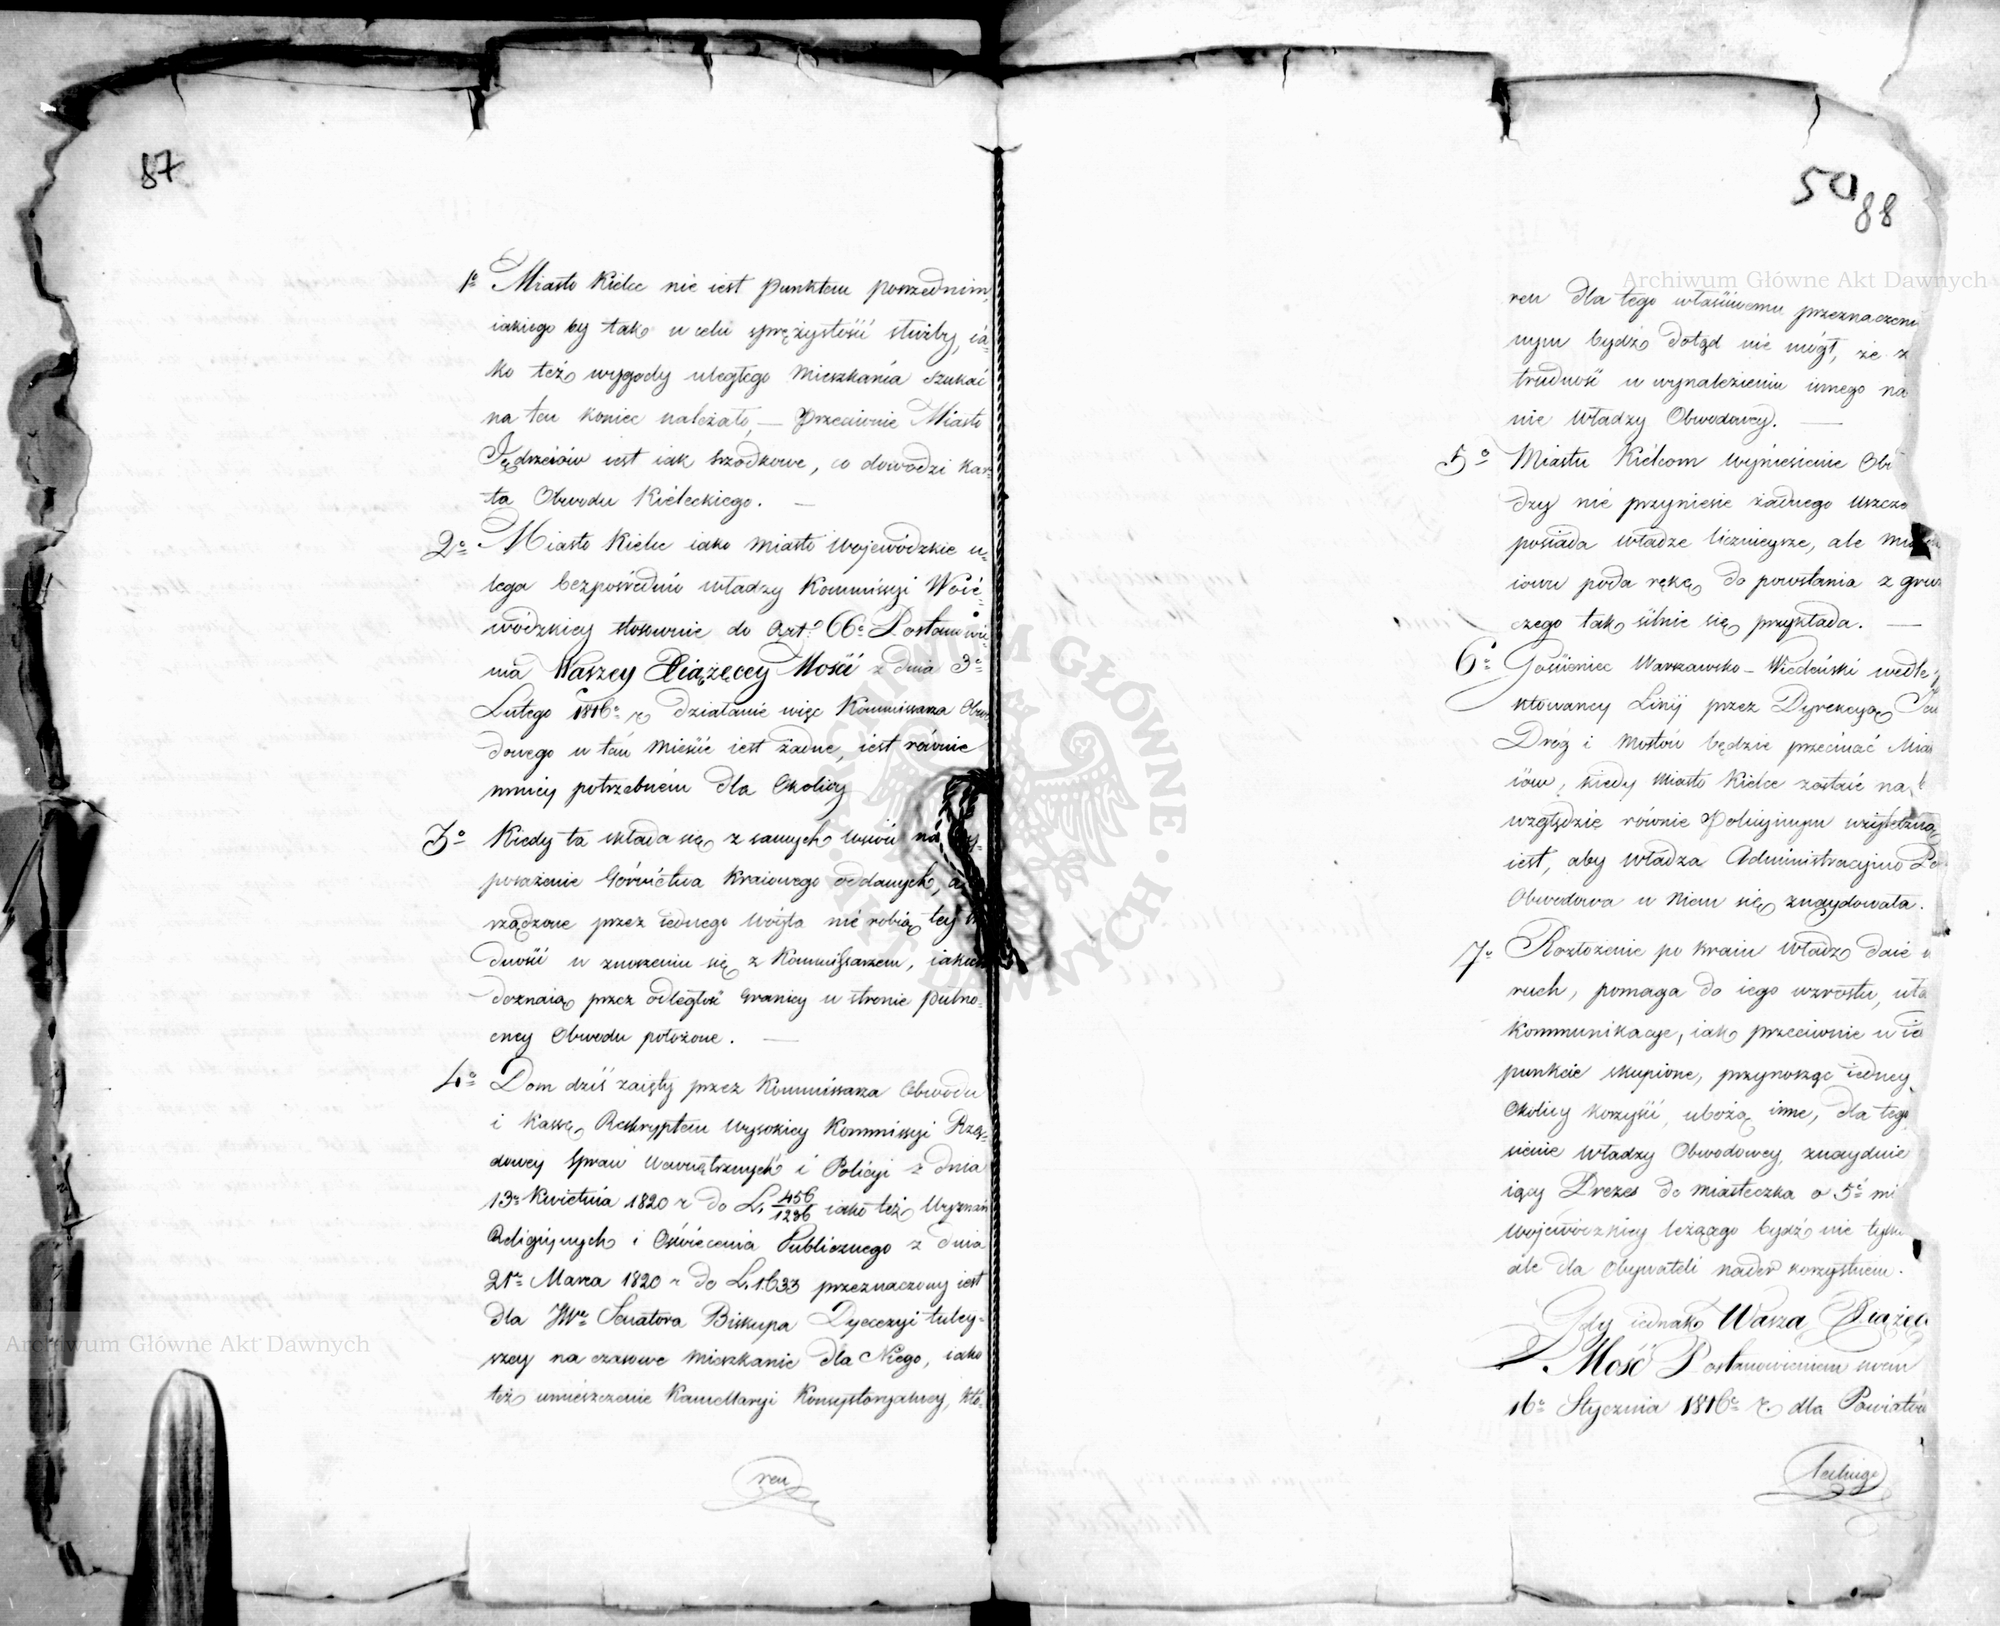 87
1º Miasto Kielce nie iest punktem poszednim,
iakiego by tak w celu sprężystości służby, ia-
ko też wygody uległego Mieszkania szukać
na ten koniec należało, — Przeciwnie Miasto
Jędrzeiów iest iak środkowe, co dowodzi Kar-
ta Obwodu Kieleckiego. —
2º Miasto Kielce iako Miasto Wojewódzkie u-
lega bezpośrednio władzy Kommissyi Woie-
wódzkiey stosownie do Art. 66º Postanowie-
nia Waszey Xiążęcey Mości z dnia 3º
Lutego 1816º r. działanie więc Kommissarza Obwo
dowego w tém Mieście iest żadne, iest równie
mniey potrzebném dla Okolicy
3º Kiedy ta składa się z samych wsiów na wy-
posażenie Górnictwa Kraiowego oddanych,
rządzone przez iednego Wóyta nie robią tey
dności w znoszeniu się z Kommissarzem, iakiey
doznaią przez odległość Granicy w stronie Pułno-
cney Obwodu położone. —
4º Dom dziś zaięty przez Kommissarza Obwodu
i Kassę, Reskryptem Wysokiey Kommissyi Rzą-
dowey Spraw Wewnętrznych i Policyi z dnia
13º Kwietnia 1820 r do L. 456/1236 iako też Wyznań
Religiynych i Oświecenia Publicznego z dnia
21º Marca 1820 r do L. 1633 przeznaczony iest
dla JWº Senatora Biskupa Dyecezyi tutey-
szey na czasowe mieszkanie dla Niego, iako
też umieszczenie Kancellaryi Konsystorzalney, któ-
ren
50
88
ren dla tego właściwemu przeznaczeni
nym bydź dotąd nie mógł, że z
trudność w wynalezieniu innego na
nie Władzy Obwodowey. —
5º Miastu Kielcom wyniesienie Ob
dzy nie przyniesie żadnego uszcze
posiada władze licznieysze, ale
iowu poda rękę do powstania z gruz
czego tak silnie się przykłada. —
6º Gościeniec Warszawsko - Wiedeński wedle
ktowaney Linij przez Dyrekcyą
Dróg i Mostów będzie przecinać Mia
iów, kiedy Miasto Kielce zostaie na
względzie równie Policyinym
iest, aby władza Administracyino Po
Obwodowa w Niem się znaydowała.
7º Rozłożenie po Kraiu Władz daie
ruch, pomaga do iego wzrostu, uła
Kommunikacye, iak przeciwnie w ie
punkcie skupione, przynosząc iedney
Okolicy korzyść, ubożą inne, dla tego
sienie Władzy Obwodowey, znaydnie
iący Prezes do Miasteczka o 5º mi
Wojewódzkiey leżącego bydź nie tylko
ale dla Obywateli nader korzystnem.
Gdy iednak Wasza Xiążęc
Mość Postanowieniem swém
16º Stycznia 1816º r. dla Powiatów
Archiwum Główne Akt Dawnych
Archiwum Główne Akt Dawnych
ARCHIWUM GŁÓWNE AKT DAWNYCH